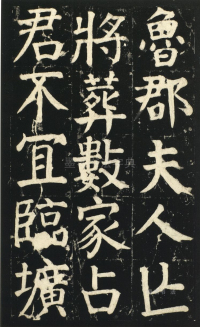 魯郡夫人亡
將葬數家占
君不宜臨壙